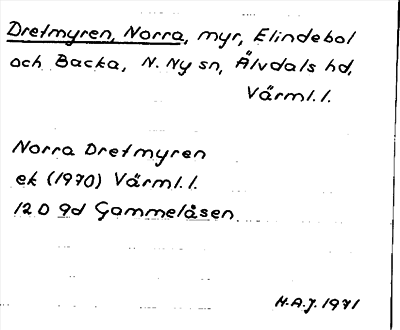 Dretmyren, Norra, myr, Elindebol
och Backa, N. Ny sn, Älvdals hd,
Värml. l.
Norra Dretmyren
ek (1970) Värml. l.
12 D 9d Gammelåsen
H.A.J. 1971